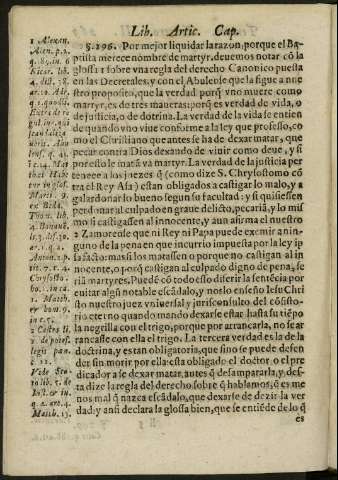 Lib. Artic. Cap.
§.196. Por mejor liquidar la razon, porque el Baptista
merece nombre de martyr, deuemos notar cō la
glossa 1 sobre vna regla del derecho Canonico puesta
en las Decretales, y con el Abulēse que la sigue a nuestro
proposito, que la verdad porq̄ vno muere como
martyr, es de tres maneras: porq̄ es verdad de vida, o
de justicia, o de dotrina. La verdad de la vida se entien
de quando vno viue conforme a la ley que professo, co
mo el Christiano que antes se ha de dexar matar, que
pecar contra Dios dexando de viuir como deue, y si
por esso le matā va martyr. La verdad de la justicia per
tenece a los juezes q̄ (como dize S. Chrysostomo cō
tra el Rey Asa) estan obligados a castigar lo malo, y a
galardonar lo bueno segun su facultad: y si quisiessen
perdonar al culpado en graue delicto, pecariā, y lo mis
mo si castigassen al innocente, y aun afirma el nuestro
2 Zamorense que ni Rey ni Papa puede eximir a nin
guno de la pena en que incurrio impuesta por la ley ip
sa facto: mas si los matassen o porque no castigan al in
nocente, o porq̄ castigan al culpado digno de pena, se
riā martyres. Puedē cō todo esso diferir la sentēcia por
euitar algū notable escādalo, y nos lo enseño Iesu Chri
sto nuestro juez vniuersal y jurisconsulto del cōsisto-
rio eterno quando mando dexarse estar hasta su tiēpo
la negrilla con el trigo, porque por arrancarla, no se ar
rancasse con ella el trigo. La tercera verdad es la de la
doctrina, y estan obligatoria, que sino se puede defen
der sin morir por ella esta obligado el doctor o el pre
dicador a se dexar matar, antes q̄ desampararla, y des-
ta dize la regla del derecho sobre q̄ hablamos, q̄ es me
nos mal q̄ nazca escādalo, que dexarse de dezir la ver
dad: y ansi declara la glossa bien, que se entiēde de lo q̄
es
1 Alexan.
Alen. p. 2.
4. dist.
ar. 10.
Mat
thei
in glos.
Marc. 9.
Tho. lib.
Chrysosto
1. Matth.
2 Castro li.
2. de potes.
legis pœn.
c. 12.
lib. 7. de
Iust. &amp; in.
Matth. 13.